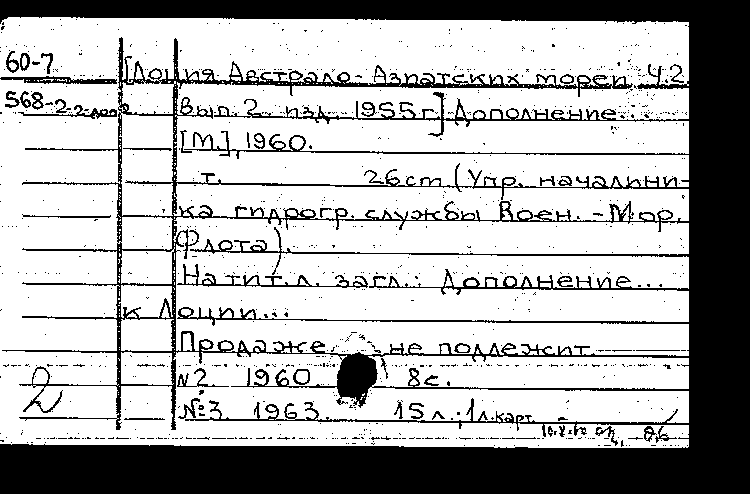 60-7
[Лоция Австрало-Азиатских морей Ч.2.
568-2
Вып. 2. изд. 1955г.] Дополнение...
[М.], 1960.
т. 26cm (Упр. начальни-
ка гидрогр. службы Воен.-Мор.
Флота).
На тит. л. загл.: Дополнение...
к Лоции...
Продаже не подлежит.
№2 1960 8с.
2
№3. 1963. 15л.; 1л.карт.